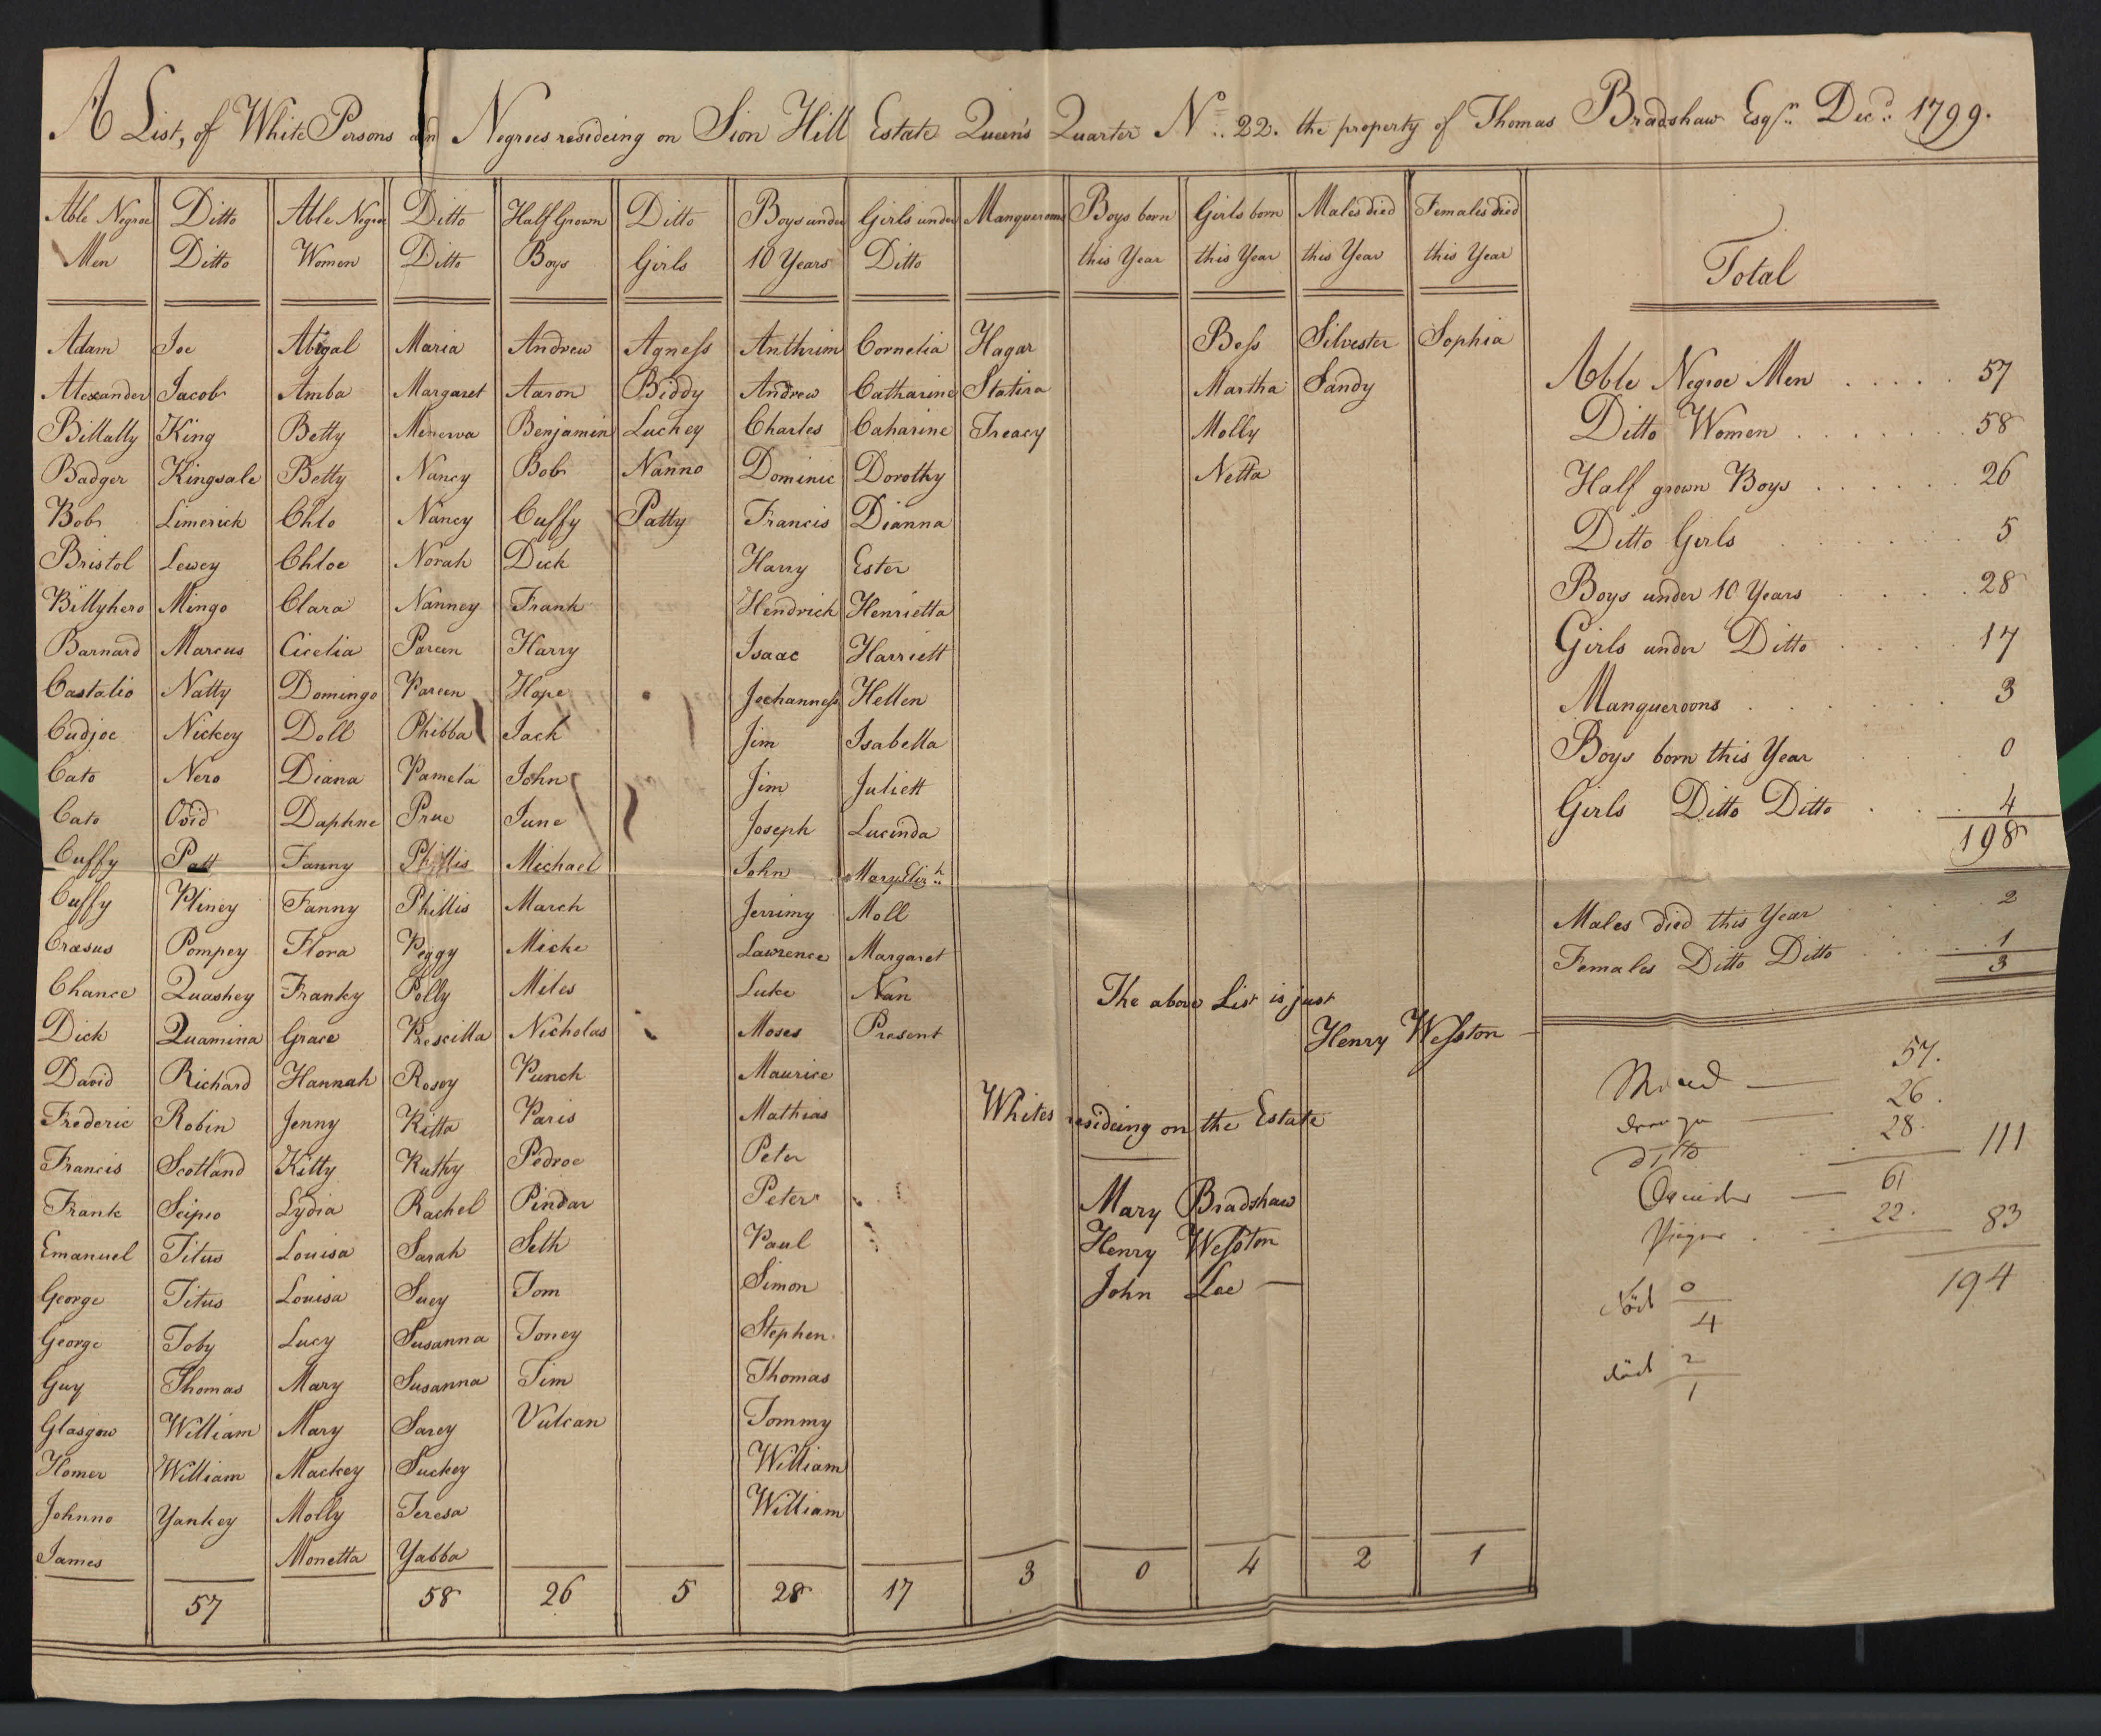 A List, of White Persons and Negroes resideing on Sion Hill Estate Queen's Quarter No. 22. the property of Thomas Bradshaw Esqr. Decr. 1799.
Able Negroe Men | Ditto Ditto | Able Negroe Women | Ditto Ditto | Half Grown Boys | Ditto Girls | Boys under 10 Years | Girls under Ditto | Manqueroons | Boys born this Year | Girls born this Year | Males died this Year | Females died this Year
Adam | Joe | Abigal | Maria | Andrew | Agness | Anthrim | Cornelia | Hagar | | Bess | Silvester | Sophia
Alexander | Jacob | Amba | Margaret | Aaron | Biddy | Andrew | Catharine | Statira | | Martha | Sandy
Billally | King | Betty | Minerva | Benjamin | Luckey | Charles | Caharine | Treacy | | Molly
Badger | Kingsale | Betty | Nancy | Bob | Nanno | Dominic | Dorothy | | | Netta
Bob | Limerick | Chlo | Nancy | Cuffy | Patty | Francis | Dianna
Bristol | Lewey | Chloe | Norah | Dick | | Harry | Ester
Billyhero | Mingo | Clara | Nanney | Frank | | Hendrick | Henrietta
Barnard | Marcus | Cicelia | Pareen | Harry | | Isaac | Harriett
Castalio | Natty | Domingo | Pareen | Hope | | Jochanness | Hellen
Cudjoe | Nickey | Doll | Phibba | Jack | | Jim | Isabella
Cato | Nero | Diana | Pamela | John | | Jim | Juliett
Cato | Ovid | Daphne | Prue | June | | Joseph | Lucinda
Cuffy | Patt | Fanny | Phillis | Michael | | John | Mary Elizh.
Cuffy | Pliney | Fanny | Phillis | March | | Jerrimy | Moll
Crasus | Pompey | Flora | Peggy | Micke | | Lawrence | Margaret
Chance | Quashey | Franky | Polly | Miles | | Luke | Nan
Dick | Quamina | Grace | Prescilla | Nicholas | | Moses | Present
David | Richard | Hannah | Rosey | Punch | | Maurice
Frederic | Robin | Jenny | Ritta | Paris | | Mathias
Francis | Scotland | Kitty | Ruthy | Pedroe | | Peter
Frank | Scipio | Lydia | Rachel | Pindar | | Peter
Emanuel | Titus | Louisa | Sarah | Seth | | Paul
George | Titus | Louisa | Suey | Tom | | Simon
George | Toby | Lucy | Susanna | Toney | | Stephen
Guy | Thomas | Mary | Susanna | Tim | | Thomas
Glasgow | William | Mary | Sarey | Vulcan | | Tommy
Homer | William | Mackey | Suckey | | | William
Johnno | Yankey | Molly | Teresa | | | William
James | | Monetta | Yabba
57 | 58 | 26 | 5 | 28 | 17 | 3 | 0 | 4 | 2 | 1
The above List is just
Henry Wesston
Whites resideing on the Estate
Mary Bradshaw
Henry Wesston
John Lee
Total
Able Negroe Men . . . . . 57
Ditto Women . . . . . . . 58
Half grown Boys . . . . . . 26
Ditto Girls . . . . . . 5
Boys under 10 Years . . . . 28
Girls under Ditto . . . . 17
Manqueroons . . . . . . 3
Boys born this Year . . . 0
Girls Ditto Ditto . . . 4
198
Males died this Year . . . 2
Females Ditto Ditto . . . 1
3
57.
26.
ditto 28. 111
61
22. 83
194
född 0
4
död 2
1